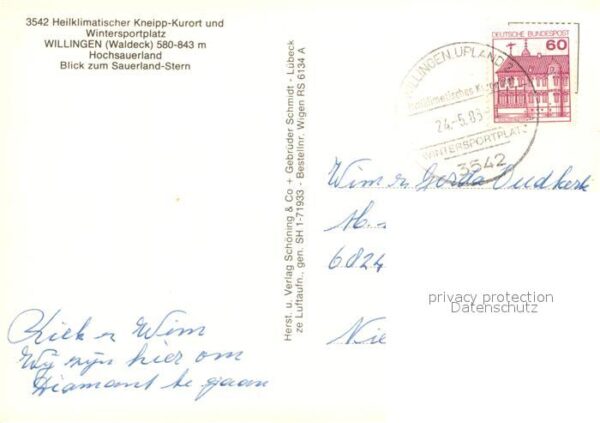 3542 Heilklimatischer Kneipp-Kurort und
Wintersportplatz
WILLINGEN (Waldeck) 580-843 m
Hochsauerland
Blick zum Sauerland-Stern
Herst. u. Verlag Schöning & Co + Gebrüder Schmidt - Lübeck
ze Luftaufn., gen. SH 1-71933 - Bestellnr. Wigen RS 6134 A
DEUTSCHE BUNDESPOST
60
WILLINGEN, UPLAND
24.-5.83
WINTERSPORTPLATZ
3542
Wim en Gerda Oudkerk
6824
privacy protection
Datenschutz
Nie
Wim
Wij zijn hier om
Diamant te gaan